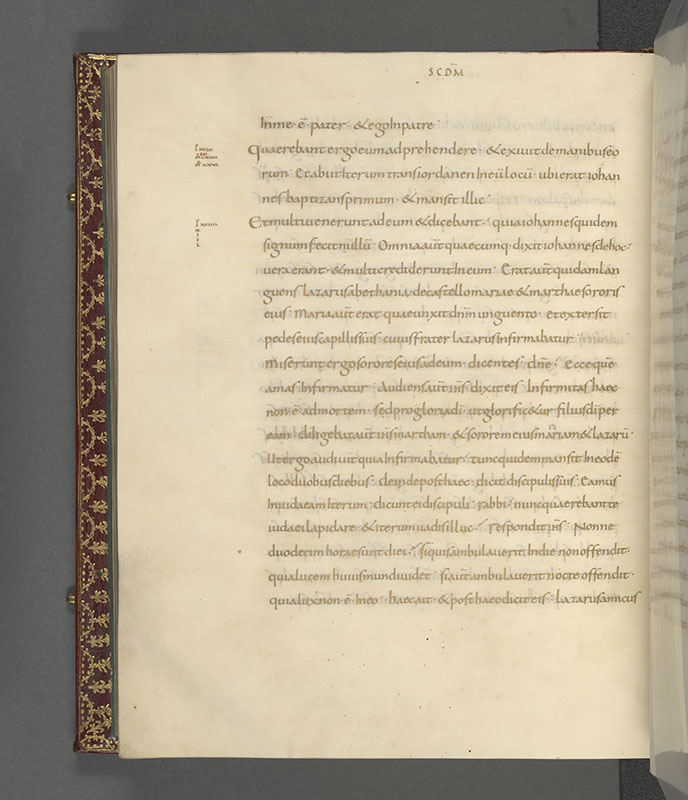 SCDM̄
In me ē pater · & ego In patre ·
Quaerebant ergo eum adprehendere · & exivit de manibus eo
rum · Et abiit Iterum trans iordanen In eū locū ubi erat iohan
nes baptizans primum · & mansit illic ·
Et multi venerunt ad eum & dicebant · quia iohannes quidem
signum fecit nullū · Omnia aūt quaecumq· dixit iohannes de hoc ·
vera erant · & multi crediderunt In eum · Erat aūt quidam lan
guens lazarus a bethania · de castello mariae & marthae sororis
eius · Maria aūt erat quae unxit dnm̄ unguento · et extersit
pedes eius capillis suis · cuius frater lazarus Infirmabatur ·
Miserunt ergo sorores eius ad eum · dicentes · dnē · Ecce quē
amas Infirmatur · Audiens aūt ihs̄ dixit eis · Infirmitas haec
non ē ad mortem · sed pro gloria dī · ut glorific&ur filius dī per
eam · diligebat aūt ihs̄ martham · & sororem eius mariam & lazarū ·
Ut ergo audiuit quia Infirmabatur · tunc quidem mansit In eodē
loco duobus diebus · deinde post haec · dicit discipulis suis · Eamus
In iudaeam Iterum · dicunt ei discipuli · rabbi · nunc quaerebant te
iudaei lapidare · & iterum uadis illuc · respondit ihs̄ · Nonne
duodecim horae sunt diei · si quis ambulauerit In die non offendit ·
quia lucem huius mundi uidet · si aūt ambulauerit nocte offendit ·
quia lux non ē In eo · haec ait · & post haec dicit eis · lazarus amicus